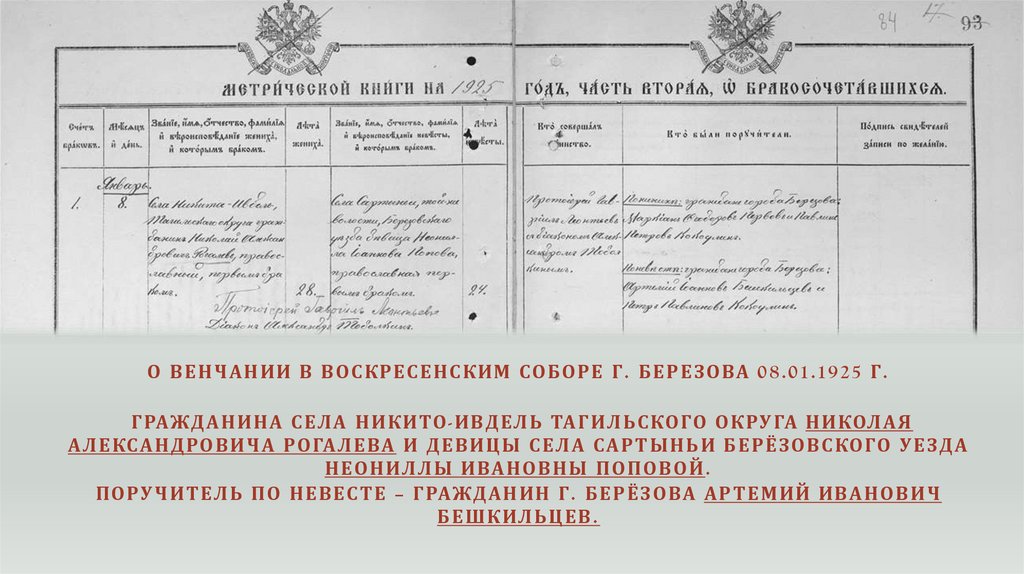 84 17. 93
МЕТРИ́ЧЕСКОЙ КНИ́ГИ НА 1925 ГО́ДЪ, ЧА́СТЬ ВТОРА́Я, Ѽ БРАКОСОЧЕТА́ВШИХСЯ.
Сче́тъ бра́ковъ.
Мѣ́сяцъ и҆ де́нь.
Зва́нїе, и҆́мя, ѻ҆́тчество, фами́лїя
и҆ вѣроисповѣ́данїе жениха̀,
и҆ кото́рымъ бра́комъ.
Лѣ́та
жениха̀.
Зва́нїе, и҆́мя, ѻ҆́тчество, фами́лїя
и҆ вѣроисповѣ́данїе невѣ́сты,
и҆ кото́рымъ бра́комъ.
Лѣ́та
невѣ́сты.
Кто̀ соверша́лъ
таинство.
Кто̀ бы́ли порꙋчи́тели.
По́дпись свидѣ́телей
за́писи по жела́нїю.
Январь.
1. 8.
Села Никита-Ивдель,
Тагильскаго округа граж-
данинъ Николай Алексан
дровичъ Рогалевъ, правос-
лавный, первымъ бра
комъ.
28.
Села Сартыньи, той же
волости, Березовскаго
уѣзда дѣвица Неонил-
ла Іоаннова Попова,
православная, пер-
вымъ бракомъ.
24.
Протоіерей Гав-
ріилъ Леонтьевъ
съ діакономъ Алек-
сандромъ Тобол
кинымъ.
По женихѣ: граждане города Березова:
Петровъ Кокоулинъ.
По невѣстѣ: граждане города Березова:
Артемій Іоанновъ Бешкильцевъ и
Петръ Павлиновъ Кокоулинъ.
Протоіерей Гавріилъ Леонтьевъ
Діаконъ Александръ Тоболкинъ.
О ВЕНЧАНИИ В ВОСКРЕСЕНСКИМ СОБОРЕ Г. БЕРЕЗОВА 08.01.1925 Г.
ГРАЖДАНИНА СЕЛА НИКИТО-ИВДЕЛЬ ТАГИЛЬСКОГО ОКРУГА НИКОЛАЯ
АЛЕКСАНДРОВИЧА РОГАЛЕВА И ДЕВИЦЫ СЕЛА САРТЫНЬИ БЕРЁЗОВСКОГО УЕЗДА
НЕОНИЛЛЫ ИВАНОВНЫ ПОПОВОЙ.
ПОРУЧИТЕЛЬ ПО НЕВЕСТЕ – ГРАЖДАНИН Г. БЕРЁЗОВА АРТЕМИЙ ИВАНОВИЧ
БЕШКИЛЬЦЕВ.